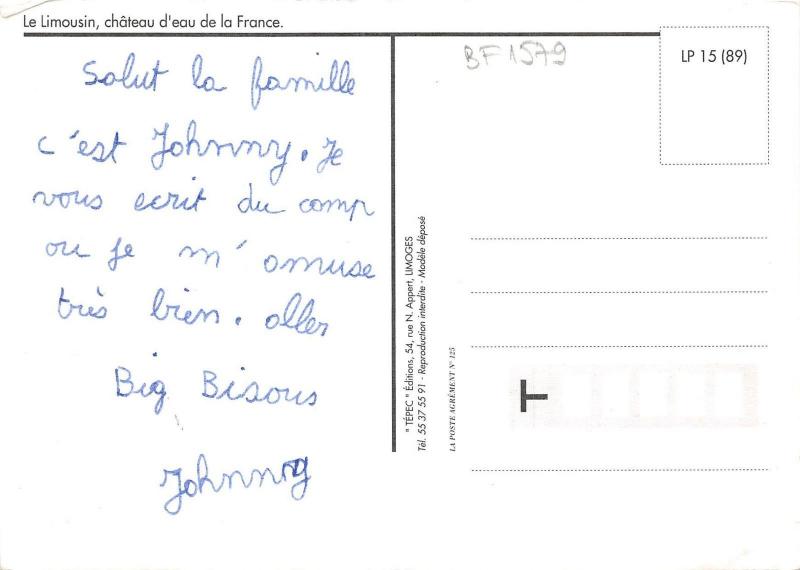 Le Limousin, château d'eau de la France.
Salut la famille
c'est Johnny. Je
vous ecrit du comp
ou je m'amuse
très bien. aller
Big Bisous
Johnny
" TÉPEC " Éditions, 54, rue N. Appert, LIMOGES
Tél. 55 37 55 91 - Reproduction interdite - Modèle déposé
LA POSTE AGRÉMENT N° 125
BF 1579
LP 15 (89)
T